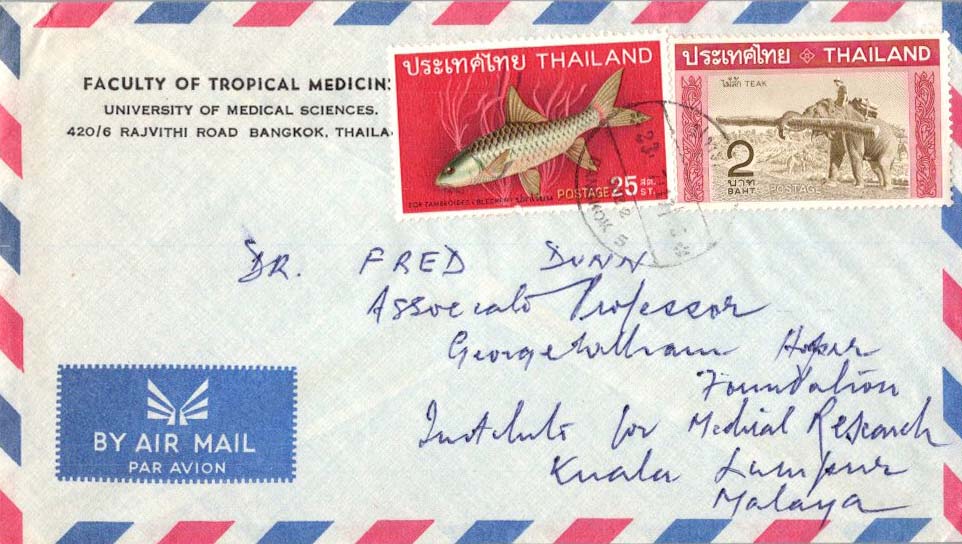 FACULTY OF TROPICAL MEDICINE
UNIVERSITY OF MEDICAL SCIENCES.
420/6 RAJVITHI ROAD BANGKOK, THAILA
ประเทศไทย THAILAND
POSTAGE 25 สต. ST.
ประเทศไทย THAILAND
ไม้สัก TEAK
2
บาท
BAHT. POSTAGE
DR. FRED DUNN
Associate Professor
George Hooper
Foundation
Institute for Medical Research
Kuala Lumpur
Malaya
BY AIR MAIL
PAR AVION